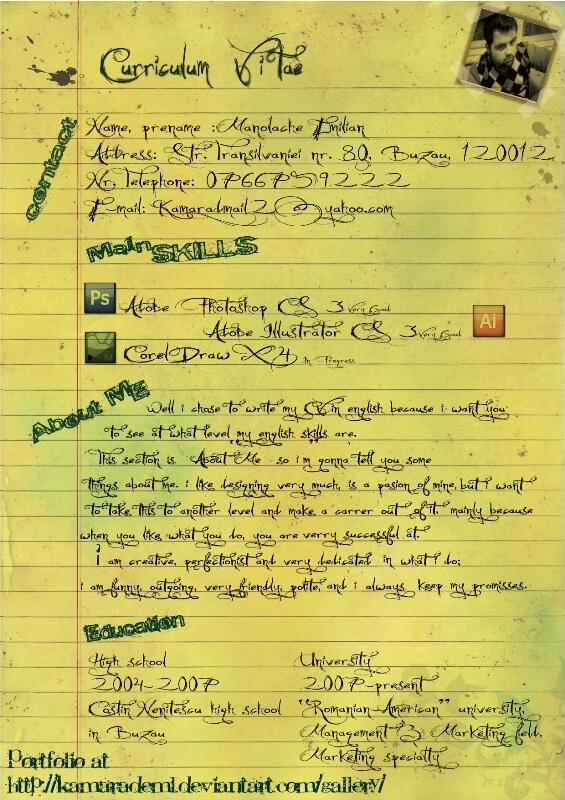 Curriculum Vitae
contact
Name, prename : Manolache Emilian
Address: Str. Transilvaniei nr. 80, Buzau, 120012
Nr. Telephone: 0766759222
E-mail: Kamaradmail2@yahoo.com
Main SKILLS
Ps
Adobe Photoshop CS 3 Very Good
Adobe Illustrator CS 3 Very Good
Ai
CorelDraw X4 In Progress
About ME
Well i chose to write my CV in english because i want you
to see at what level my english skills are.
This section is "About Me" so i'm gonna tell you some
things about me. i like designing very much, is a pasion of mine, but i want
to take this to another level and make a carrer out of it. mainly because
when you like what you do, you are verry successful at.
I am creative, perfectionist and very dedicated in what i do;
i am funny, outgoing, very friendly, polite, and i always keep my promisses.
Education
High school
2004-2007
Costin Nenitescu high school
in Buzau
University
2007-present
"Romanian-American" university,
Management & Marketing field.
Marketing specialty
Portfolio at
http://kamarademl.deviantart.com/gallery/